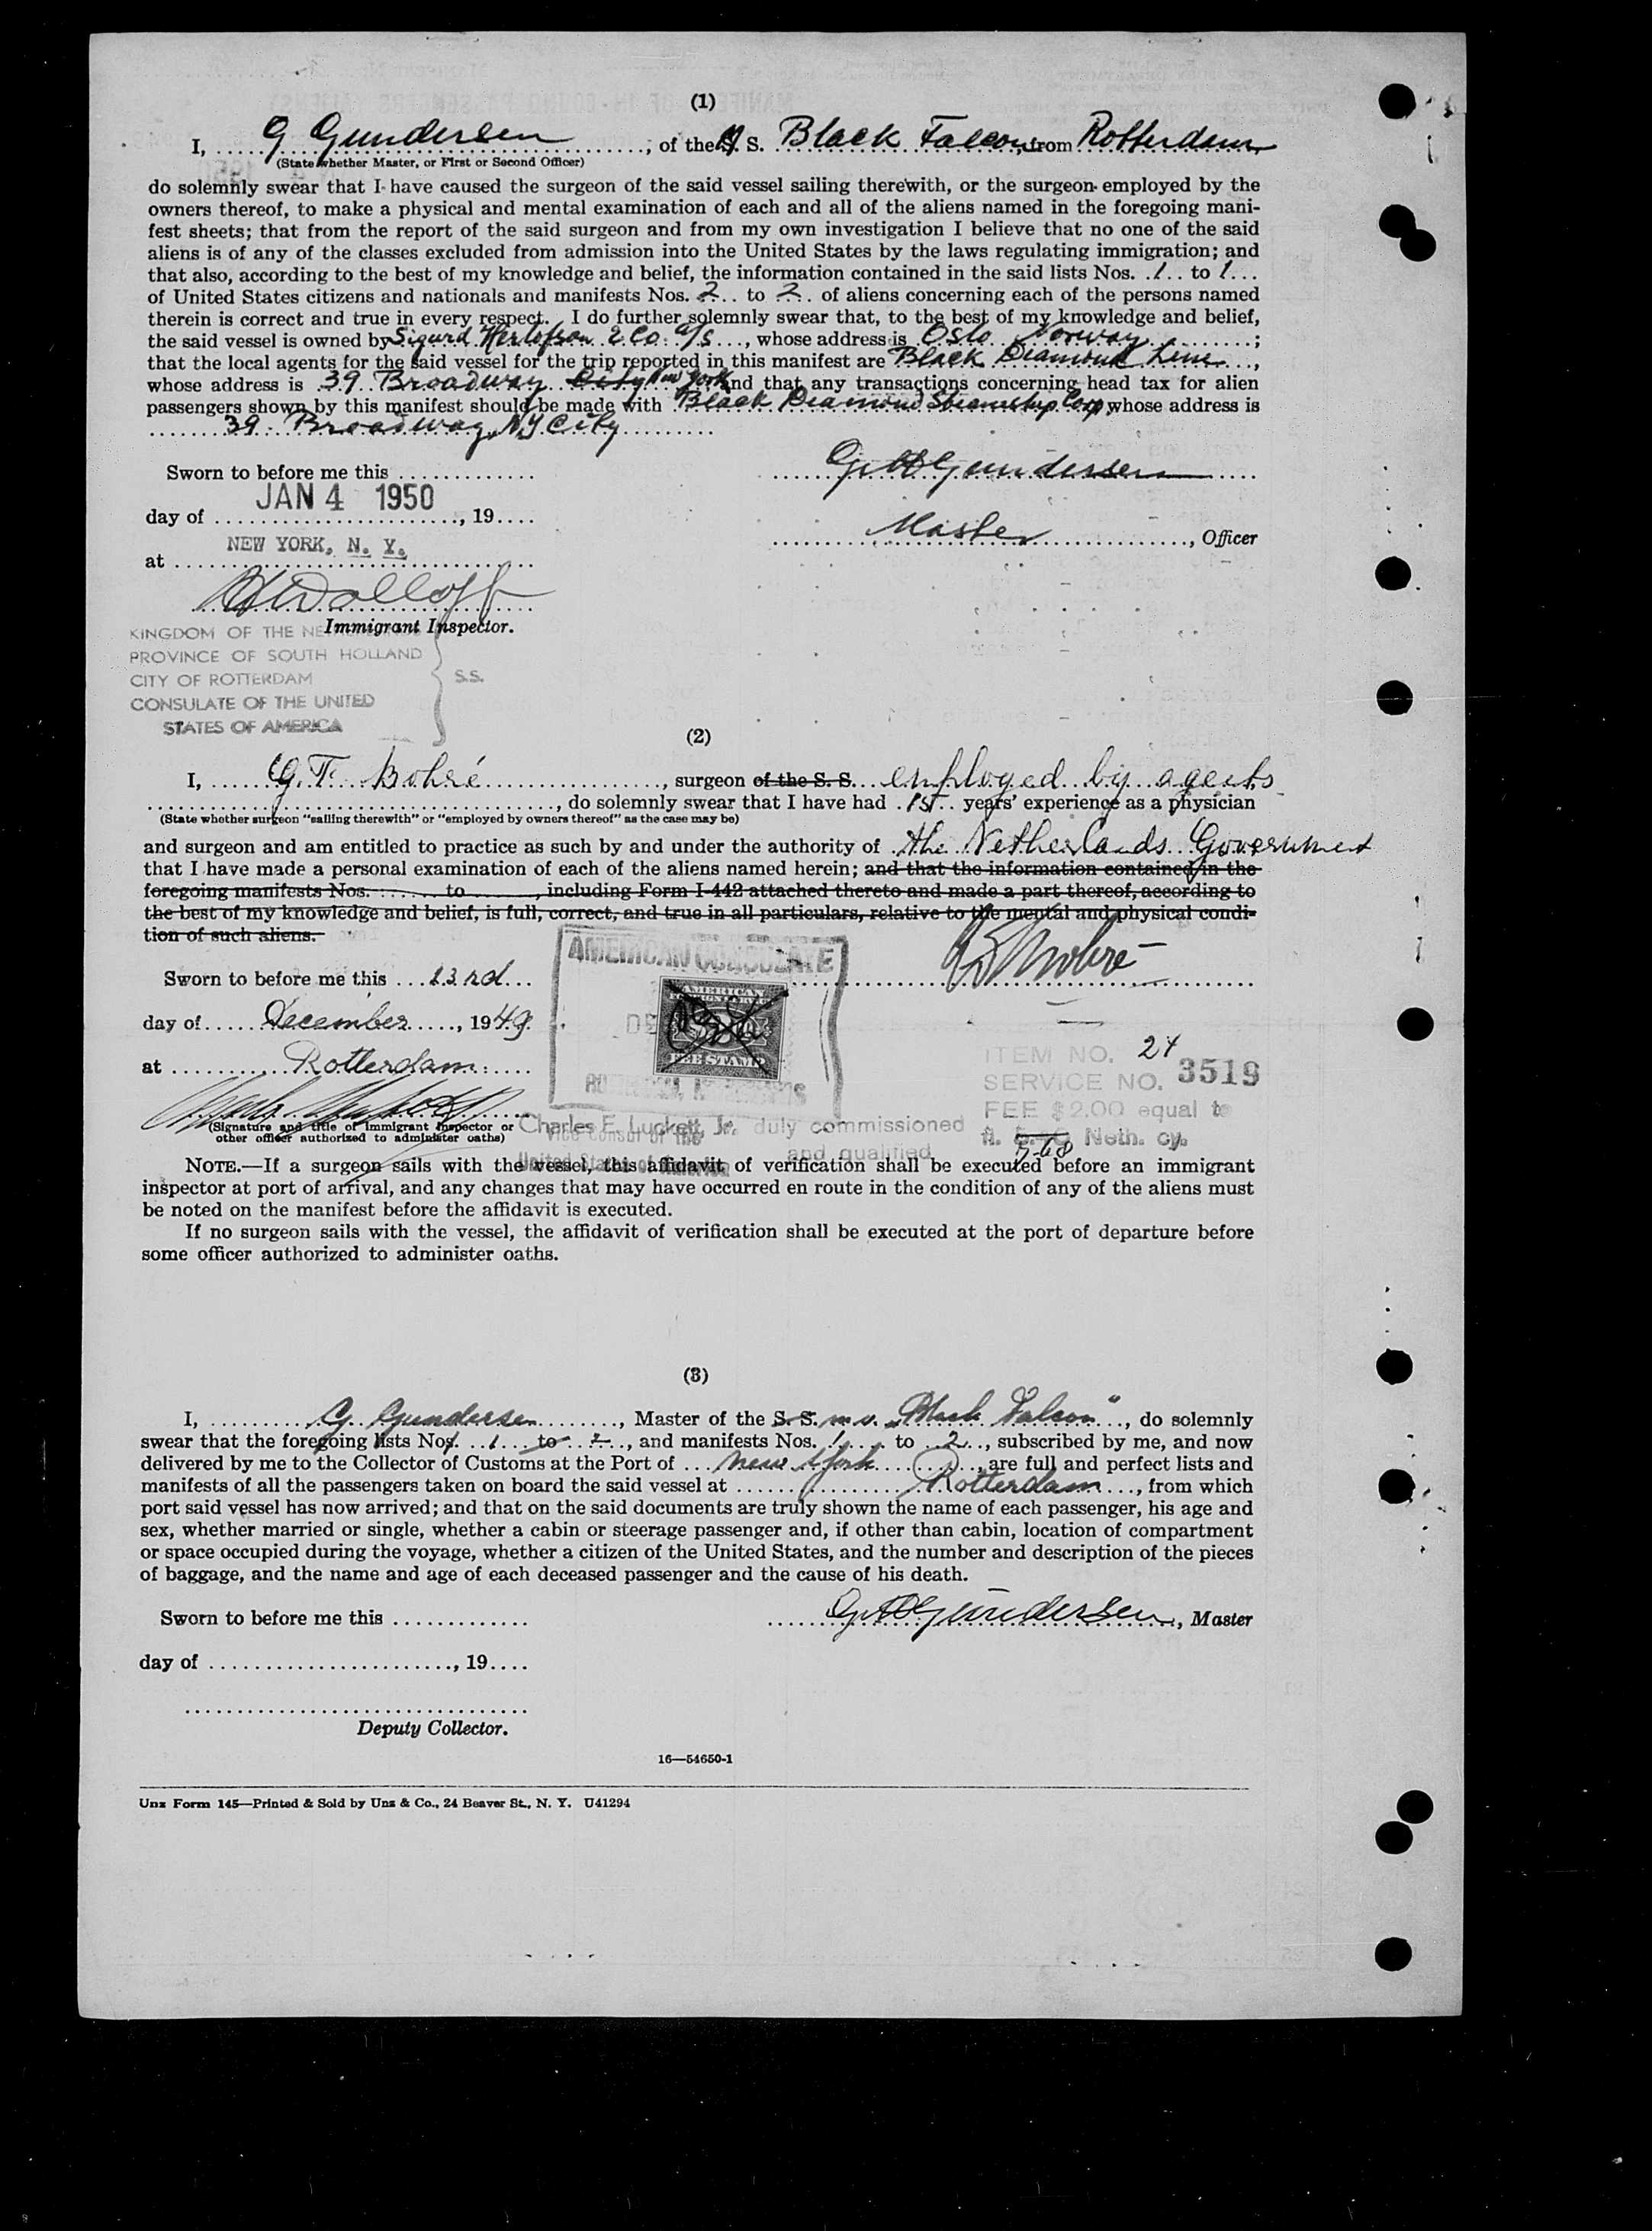 (1)
I, G Gundersen, of the M. S. Black Falcon, from Rotterdam
(State whether Master, or First or Second Officer)
do solemnly swear that I have caused the surgeon of the said vessel sailing therewith, or the surgeon employed by the
owners thereof, to make a physical and mental examination of each and all of the aliens named in the foregoing mani-
fest sheets; that from the report of the said surgeon and from my own investigation I believe that no one of the said
aliens is of any of the classes excluded from admission into the United States by the laws regulating immigration; and
that also, according to the best of my knowledge and belief, the information contained in the said lists Nos. 1 to 1
of United States citizens and nationals and manifests Nos. 2 to 2 of aliens concerning each of the persons named
therein is correct and true in every respect. I do further solemnly swear that, to the best of my knowledge and belief,
the said vessel is owned by Sigurd Herlofson & Co. A/S, whose address is Oslo Norway;
that the local agents for the said vessel for the trip reported in this manifest are Black Diamond Line,
whose address is 39 Broadway City New York and that any transactions concerning head tax for alien
passengers shown by this manifest should be made with Black Diamond Steamship Corp, whose address is
39 Broadway, NY City
Sworn to before me this
G Gundersen
JAN 4 1950
day of , 19
Master, Officer
NEW YORK, N. Y.
at
Immigrant Inspector.
KINGDOM OF THE NE
PROVINCE OF SOUTH HOLLAND
CITY OF ROTTERDAM S.S.
CONSULATE OF THE UNITED
STATES OF AMERICA
(2)
I, G. F. Bohré, surgeon of the S. S. employed by agents
, do solemnly swear that I have had years' experience as a physician
(State whether surgeon "sailing therewith" or "employed by owners thereof" as the case may be)
and surgeon and am entitled to practice as such by and under the authority of the Netherlands Government
that I have made a personal examination of each of the aliens named herein; and that the information contained in the
foregoing manifests Nos. to , including Form I-442 attached thereto and made a part thereof, according to
the best of my knowledge and belief, is full, correct, and true in all particulars, relative to the mental and physical condi-
tion of such aliens.
AMERICAN CONSULATE
Sworn to before me this 23rd
AMERICAN
FEE STAMP
day of December, 1949
at Rotterdam
ITEM NO. 24
SERVICE NO. 3519
FEE $2.00 equal to
fl. Neth. cy.
7.68
(Signature and title of immigrant inspector or
other officer authorized to administer oaths)
Charles E. Luckett, Jr. duly commissioned
Vice Consul of the and qualified
United States of America
NOTE.—If a surgeon sails with the vessel, this affidavit of verification shall be executed before an immigrant
inspector at port of arrival, and any changes that may have occurred en route in the condition of any of the aliens must
be noted on the manifest before the affidavit is executed.
If no surgeon sails with the vessel, the affidavit of verification shall be executed at the port of departure before
some officer authorized to administer oaths.
(3)
I, G. Gundersen, Master of the S. S. m.v. "Black Falcon", do solemnly
swear that the foregoing lists Nos. 1 to 2, and manifests Nos. 1 to 2, subscribed by me, and now
delivered by me to the Collector of Customs at the Port of New York, are full and perfect lists and
manifests of all the passengers taken on board the said vessel at Rotterdam, from which
port said vessel has now arrived; and that on the said documents are truly shown the name of each passenger, his age and
sex, whether married or single, whether a cabin or steerage passenger and, if other than cabin, location of compartment
or space occupied during the voyage, whether a citizen of the United States, and the number and description of the pieces
of baggage, and the name and age of each deceased passenger and the cause of his death.
Sworn to before me this
G Gundersen, Master
day of , 19
Deputy Collector.
16—54650-1
Unz Form 145—Printed & Sold by Unz & Co., 24 Beaver St., N. Y. U41294